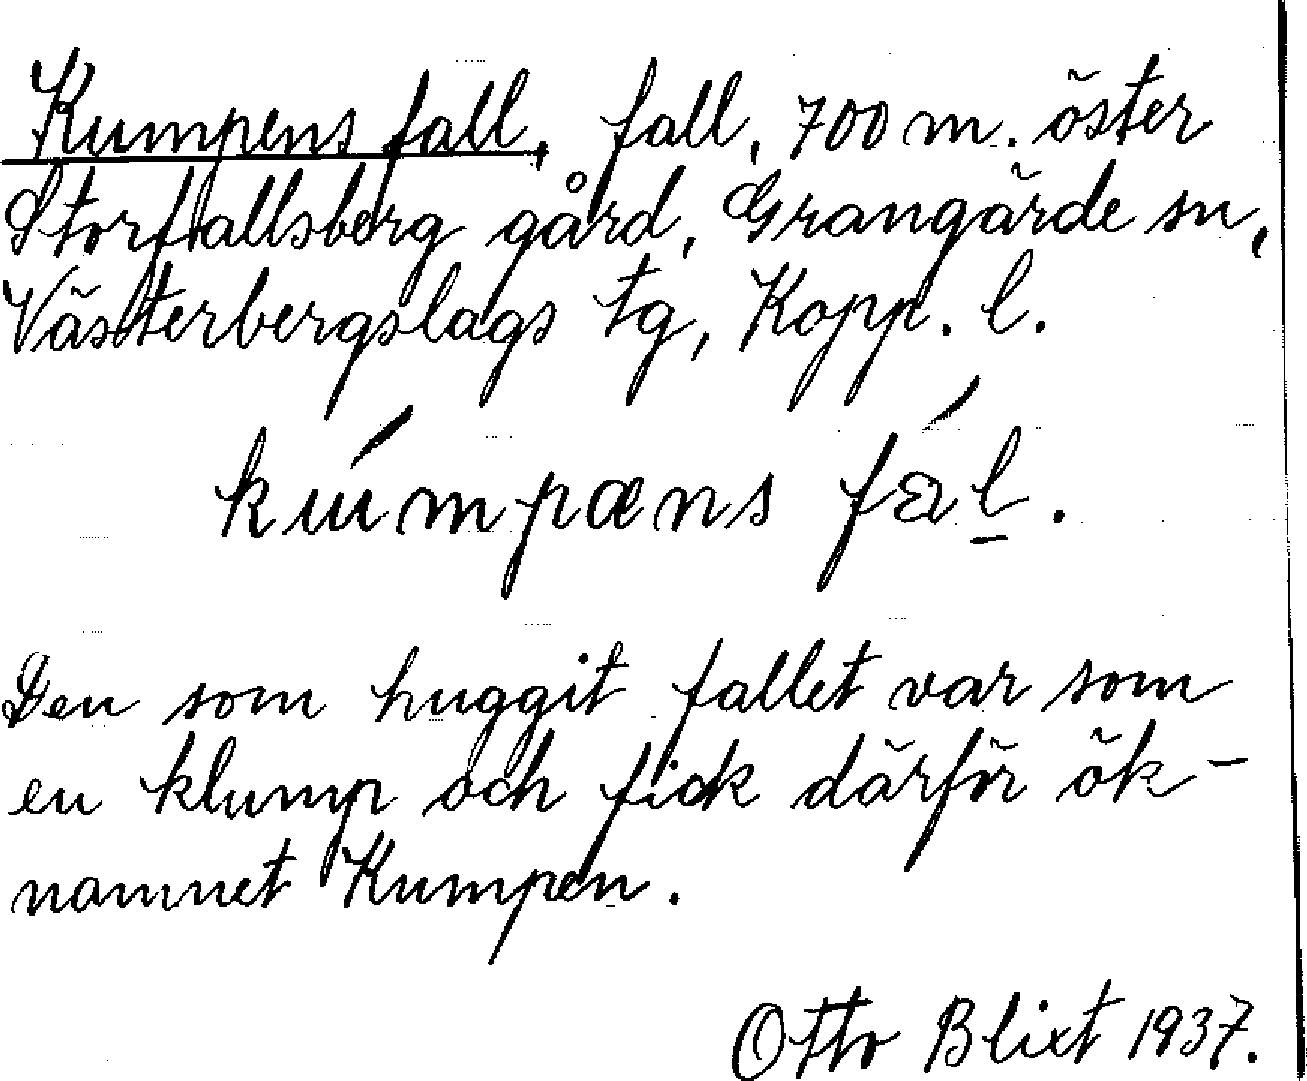 Kumpens fall, fall, 700 m. öster
Storfallsberg gård, Grangärde sn,
Västerbergslags tg, Kopp. l.
kúmpæns fál̠.
Den som huggit fallet var som
en klump och fick därför ök-
namnet Kumpen.
Otto Blixt 1937.